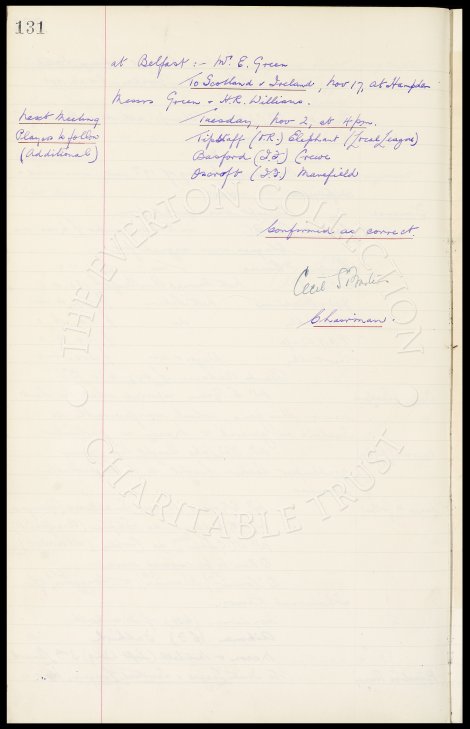 131
at Belfast :- Mr. E. Green
To Scotland v Ireland, Nov 17, at Hampden
Messrs Green & H.R. Williams.
Next Meeting
Tuesday, Nov 2, at 4 pm.
Players to follow
(Additional)
Tipstaff (I.R.) Elephant (Local League)
Basford (I.F.) Crewe
Oscroft (I.F.) Mansfield
Confirmed as correct
Cecil S Baxter
Chairman.
THE EVERTON COLLECTION
CHARITABLE TRUST